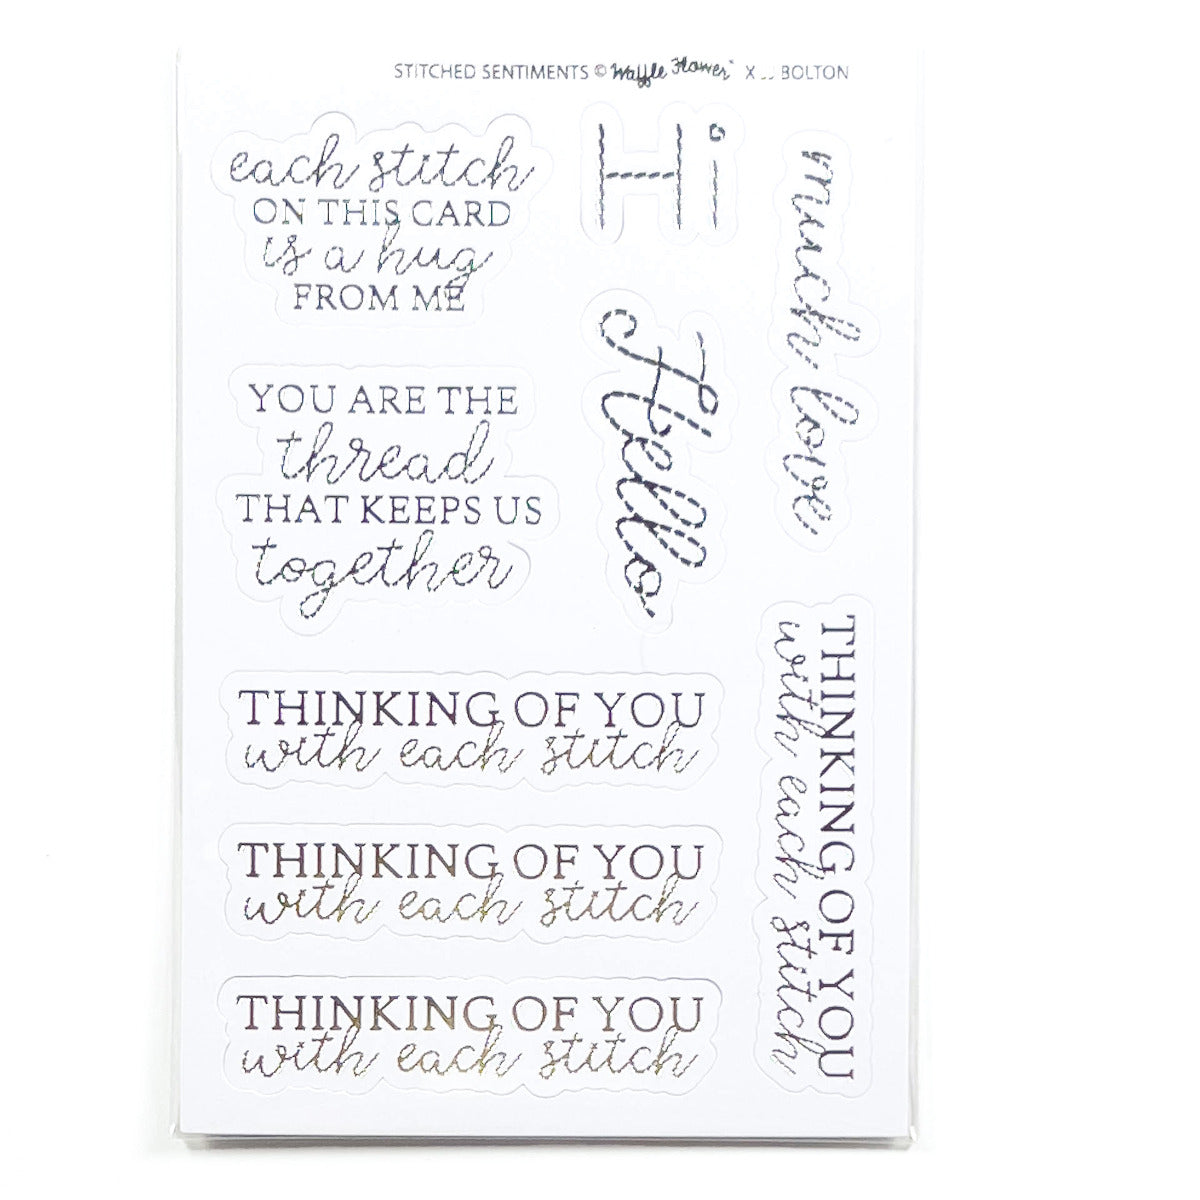 STITCHED SENTIMENTS © Waffle Flower X JJ BOLTON
each stitch
ON THIS CARD
is a hug
FROM ME
Hi
much love
YOU ARE THE
thread
THAT KEEPS US
together
Hello
THINKING OF YOU
with each stitch
THINKING OF YOU
with each stitch
THINKING OF YOU
with each stitch
THINKING OF YOU
with each stitch